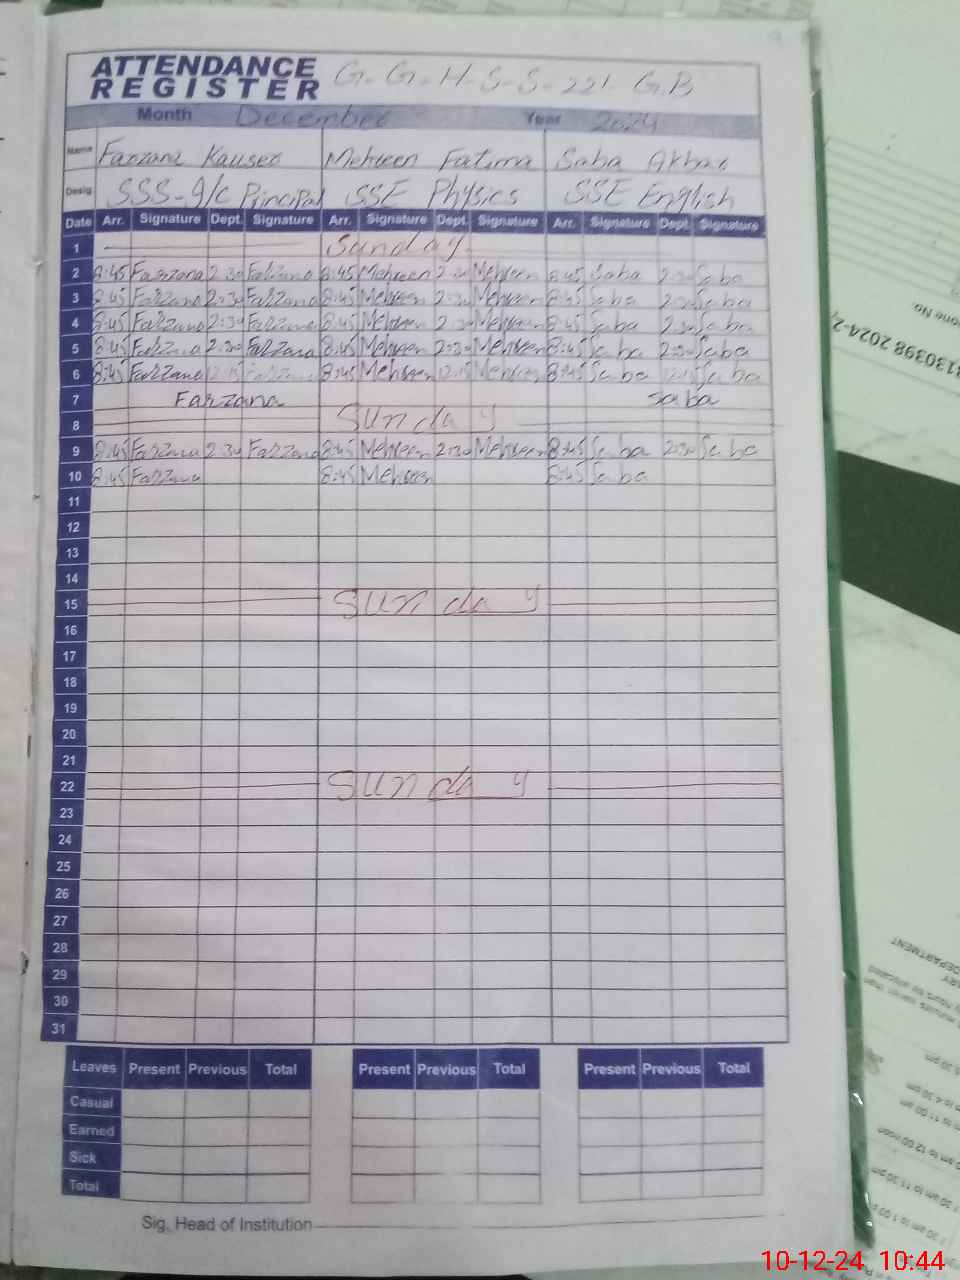 ATTENDANCE REGISTER G.G.H.S.S. 221. G.B
Month December Year 2024
Name Farzana Kauser Mehreen Fatima Saba Akbar
Desig SSS-I/c Principal SSE Physics SSE English
Date Arr. Signature Dept. Signature Arr. Signature Dept. Signature Arr. Signature Dept. Signature
1 Sunday
2 8:45 Farzana 2:30 Farzana 8:45 Mehreen 2:30 Mehreen 8:45 Saba 2:30 Saba
3 8:45 Farzana 2:30 Farzana 8:45 Mehreen 2:30 Mehreen 8:45 Saba 2:30 Saba
4 8:45 Farzana 2:30 Farzana 8:45 Mehreen 2:30 Mehreen 8:45 Saba 2:30 Saba
5 8:45 Farzana 2:30 Farzana 8:45 Mehreen 2:30 Mehreen 8:45 Saba 2:30 Saba
6 8:45 Farzana 12:15 Farzana 8:45 Mehreen 12:15 Mehreen 8:45 Saba 12:15 Saba
7 Farzana Saba
8 Sunday
9 8:45 Farzana 2:30 Farzana 8:45 Mehreen 2:30 Mehreen 8:45 Saba 2:30 Saba
10 8:45 Farzana 8:45 Mehreen 8:45 Saba
11
12
13
14
15 Sunday
16
17
18
19
20
21
22 Sunday
23
24
25
26
27
28
29
30
31
Leaves Present Previous Total Present Previous Total Present Previous Total
Casual
Earned
Sick
Total
Sig. Head of Institution
10-12-24 10:44